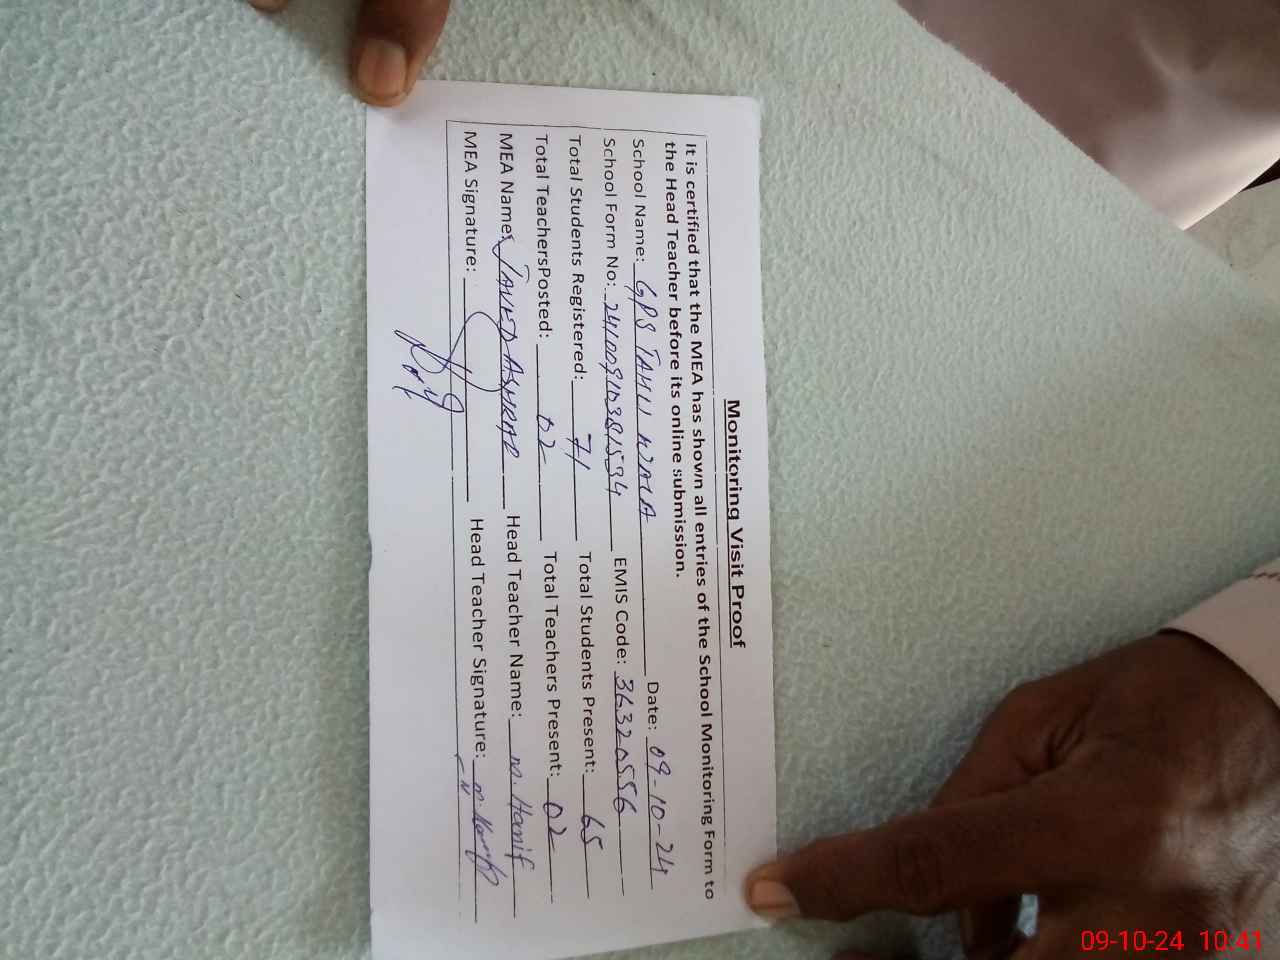 Monitoring Visit Proof
It is certified that the MEA has shown all entries of the School Monitoring Form to
the Head Teacher before its online submission.
School Name: GPS TAHLI WALA Date: 09-10-24
School Form No: EMIS Code: 36320556
Total Students Registered: 71 Total Students Present: 65
Total TeachersPosted: 02 Total Teachers Present: 02
MEA Name: JAVED ASHRAF Head Teacher Name: M. Hanif
MEA Signature: Head Teacher Signature:
09-10-24 10:41